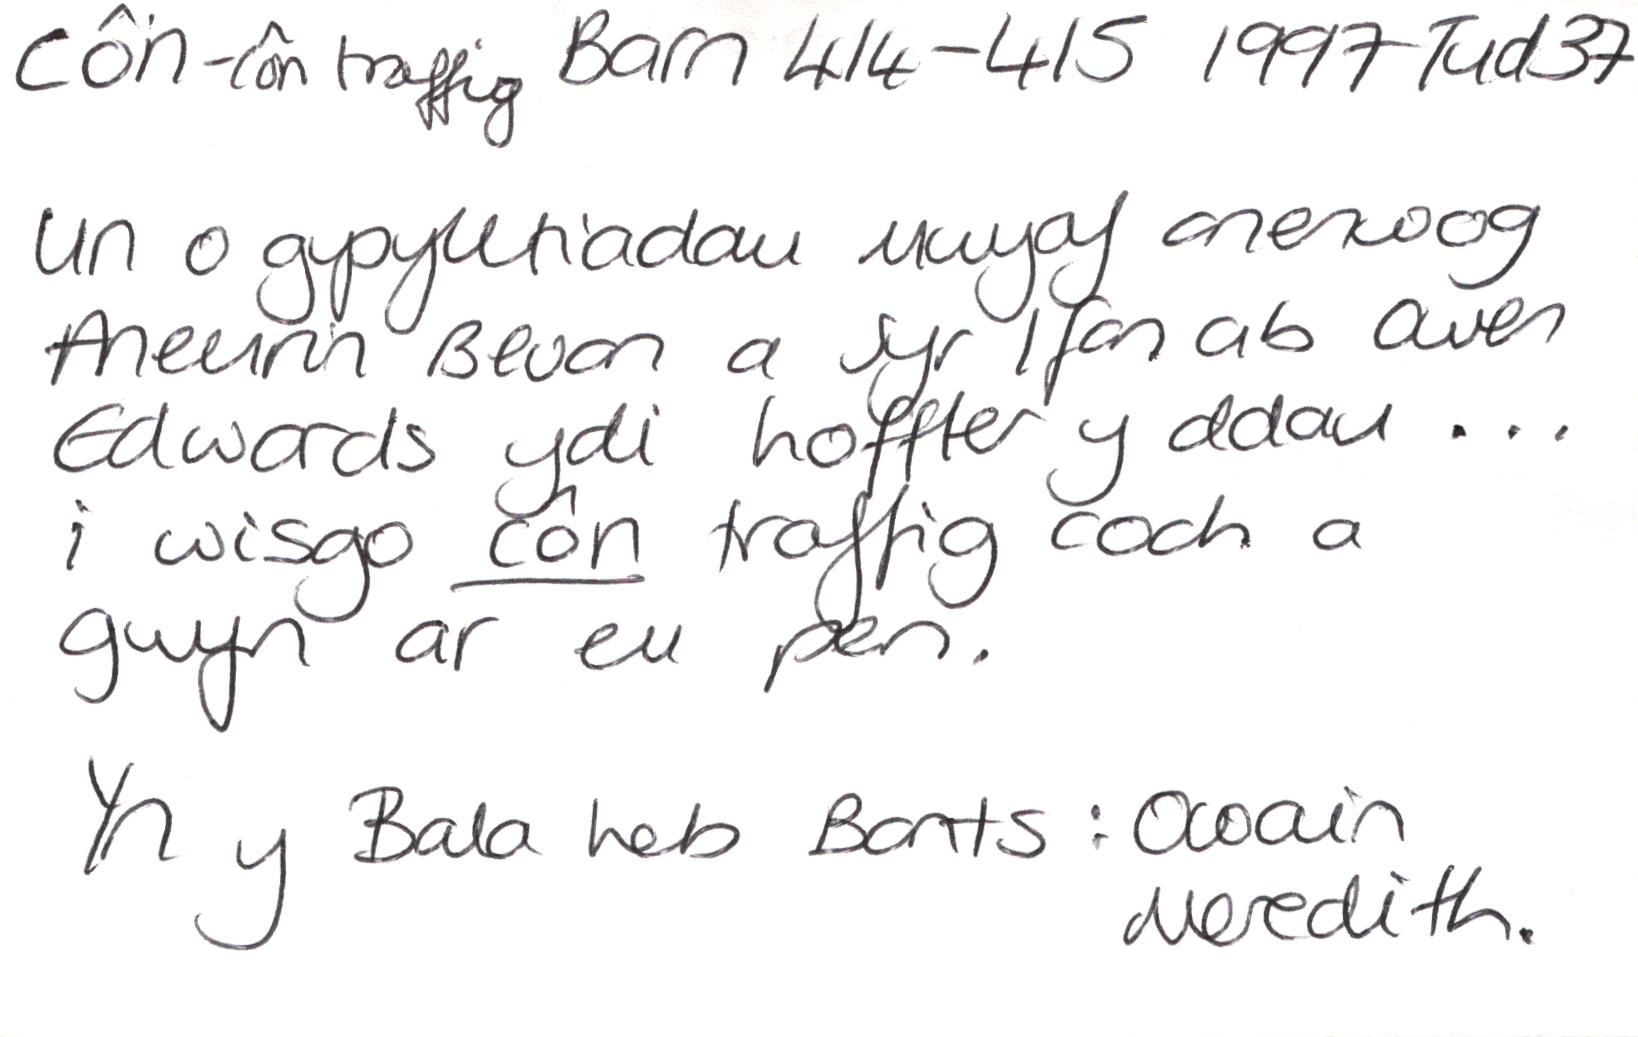 CÔN - côn traffig Barn 414-415 1997 Tud 37
Un o gypylltiadau mwyaf enwog
Aneurin Bevan a Syr Ifan ab Owen
Edwards ydi hoffter y ddau ...
i wisgo côn traffig coch a
gwyn ar eu pen.
Yn y Bala heb Bants: Owain
Meredith.